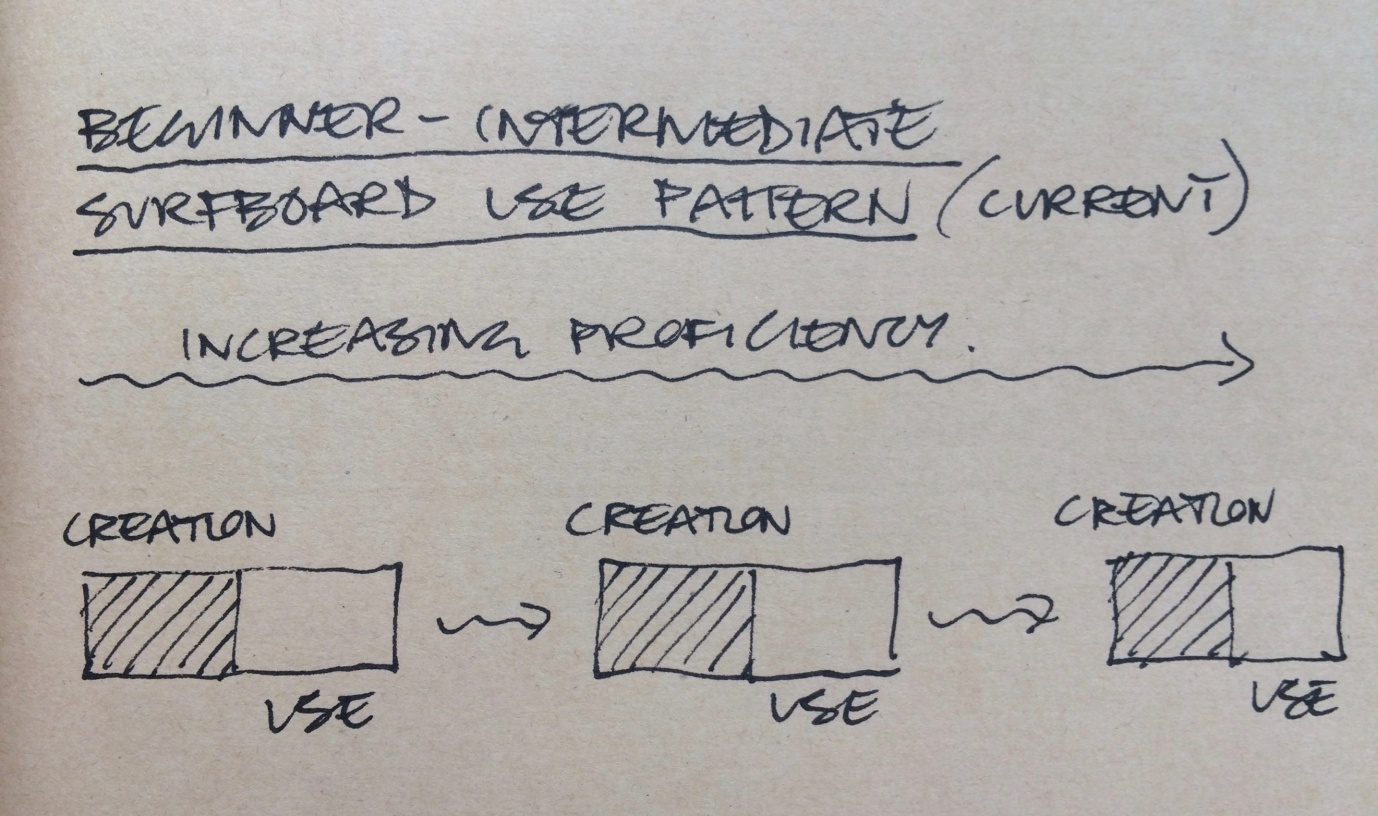 BEGINNER - INTERMEDIATE
SURFBOARD USE PATTERN (CURRENT)
INCREASING PROFICIENCY.
CREATION CREATION CREATION
USE USE USE